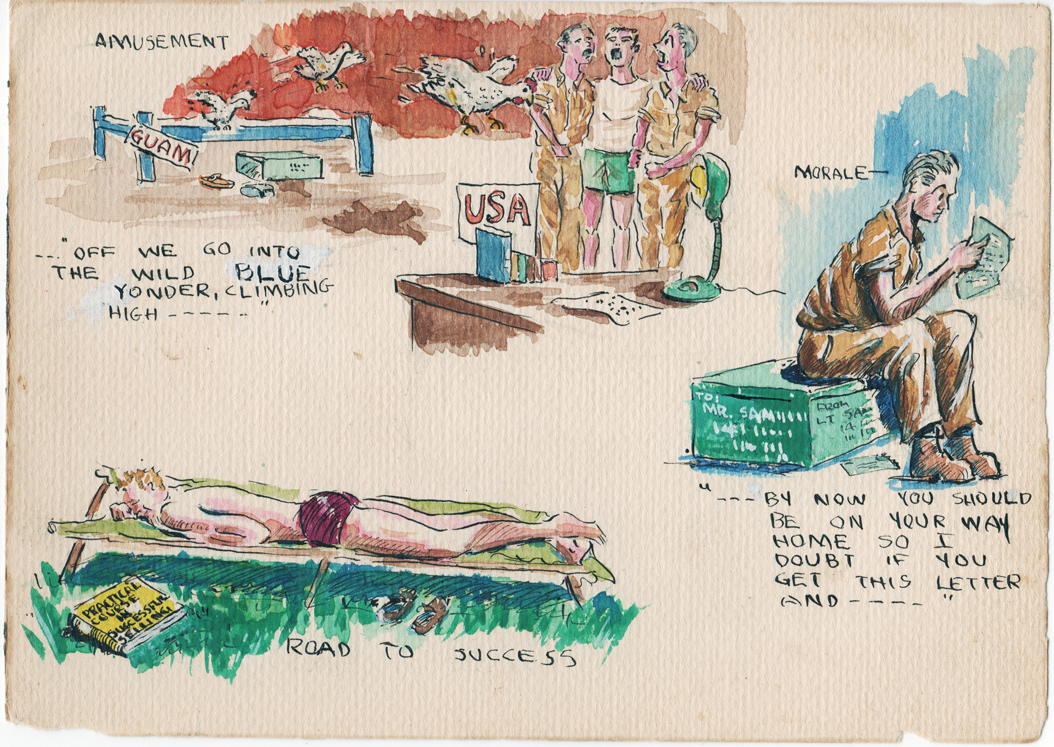 AMUSEMENT
GUAM
USA
---"OFF WE GO INTO
THE WILD BLUE
YONDER, CLIMBING
HIGH ----- "
MORALE—
TO:
MR. SAM
FROM
LT SAM
14
"--- BY NOW YOU SHOULD
BE ON YOUR WAY
HOME SO I
DOUBT IF YOU
GET THIS LETTER
AND ---- "
PRACTICAL
COURSE
IN
SUCCESSFUL
SELLING!
ROAD TO SUCCESS